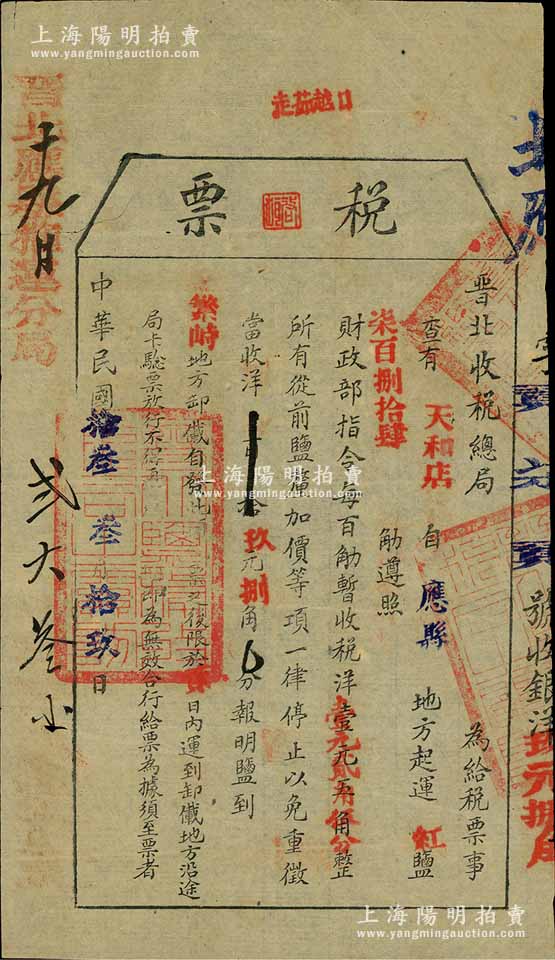 上海陽明拍賣
www.yangmingauction.com
走茹越口
稅票
晋北收税總局
為給税票事
查有天和店自應縣地方起運紅鹽
柒百捌拾肆
觔遵照
財政部指令每百觔暫收税洋壹元五角整
壹元貳角伍分
所有從前鹽觔加價等項一律停止以免重徵
當收洋玖元捌角分報明鹽到
繁峙地方卸儎自
票之後限於日內運到卸儎地方沿途
局卡騐票放行不得
印為無效合行給票為據須至票者
中華民國拾叁叁月拾玖日
十九日
弍大叁小
分局
號收銀洋玖元捌角
上海陽明拍賣
www.yangmingauction.com
上海陽明拍賣
www.yangmingauction.com